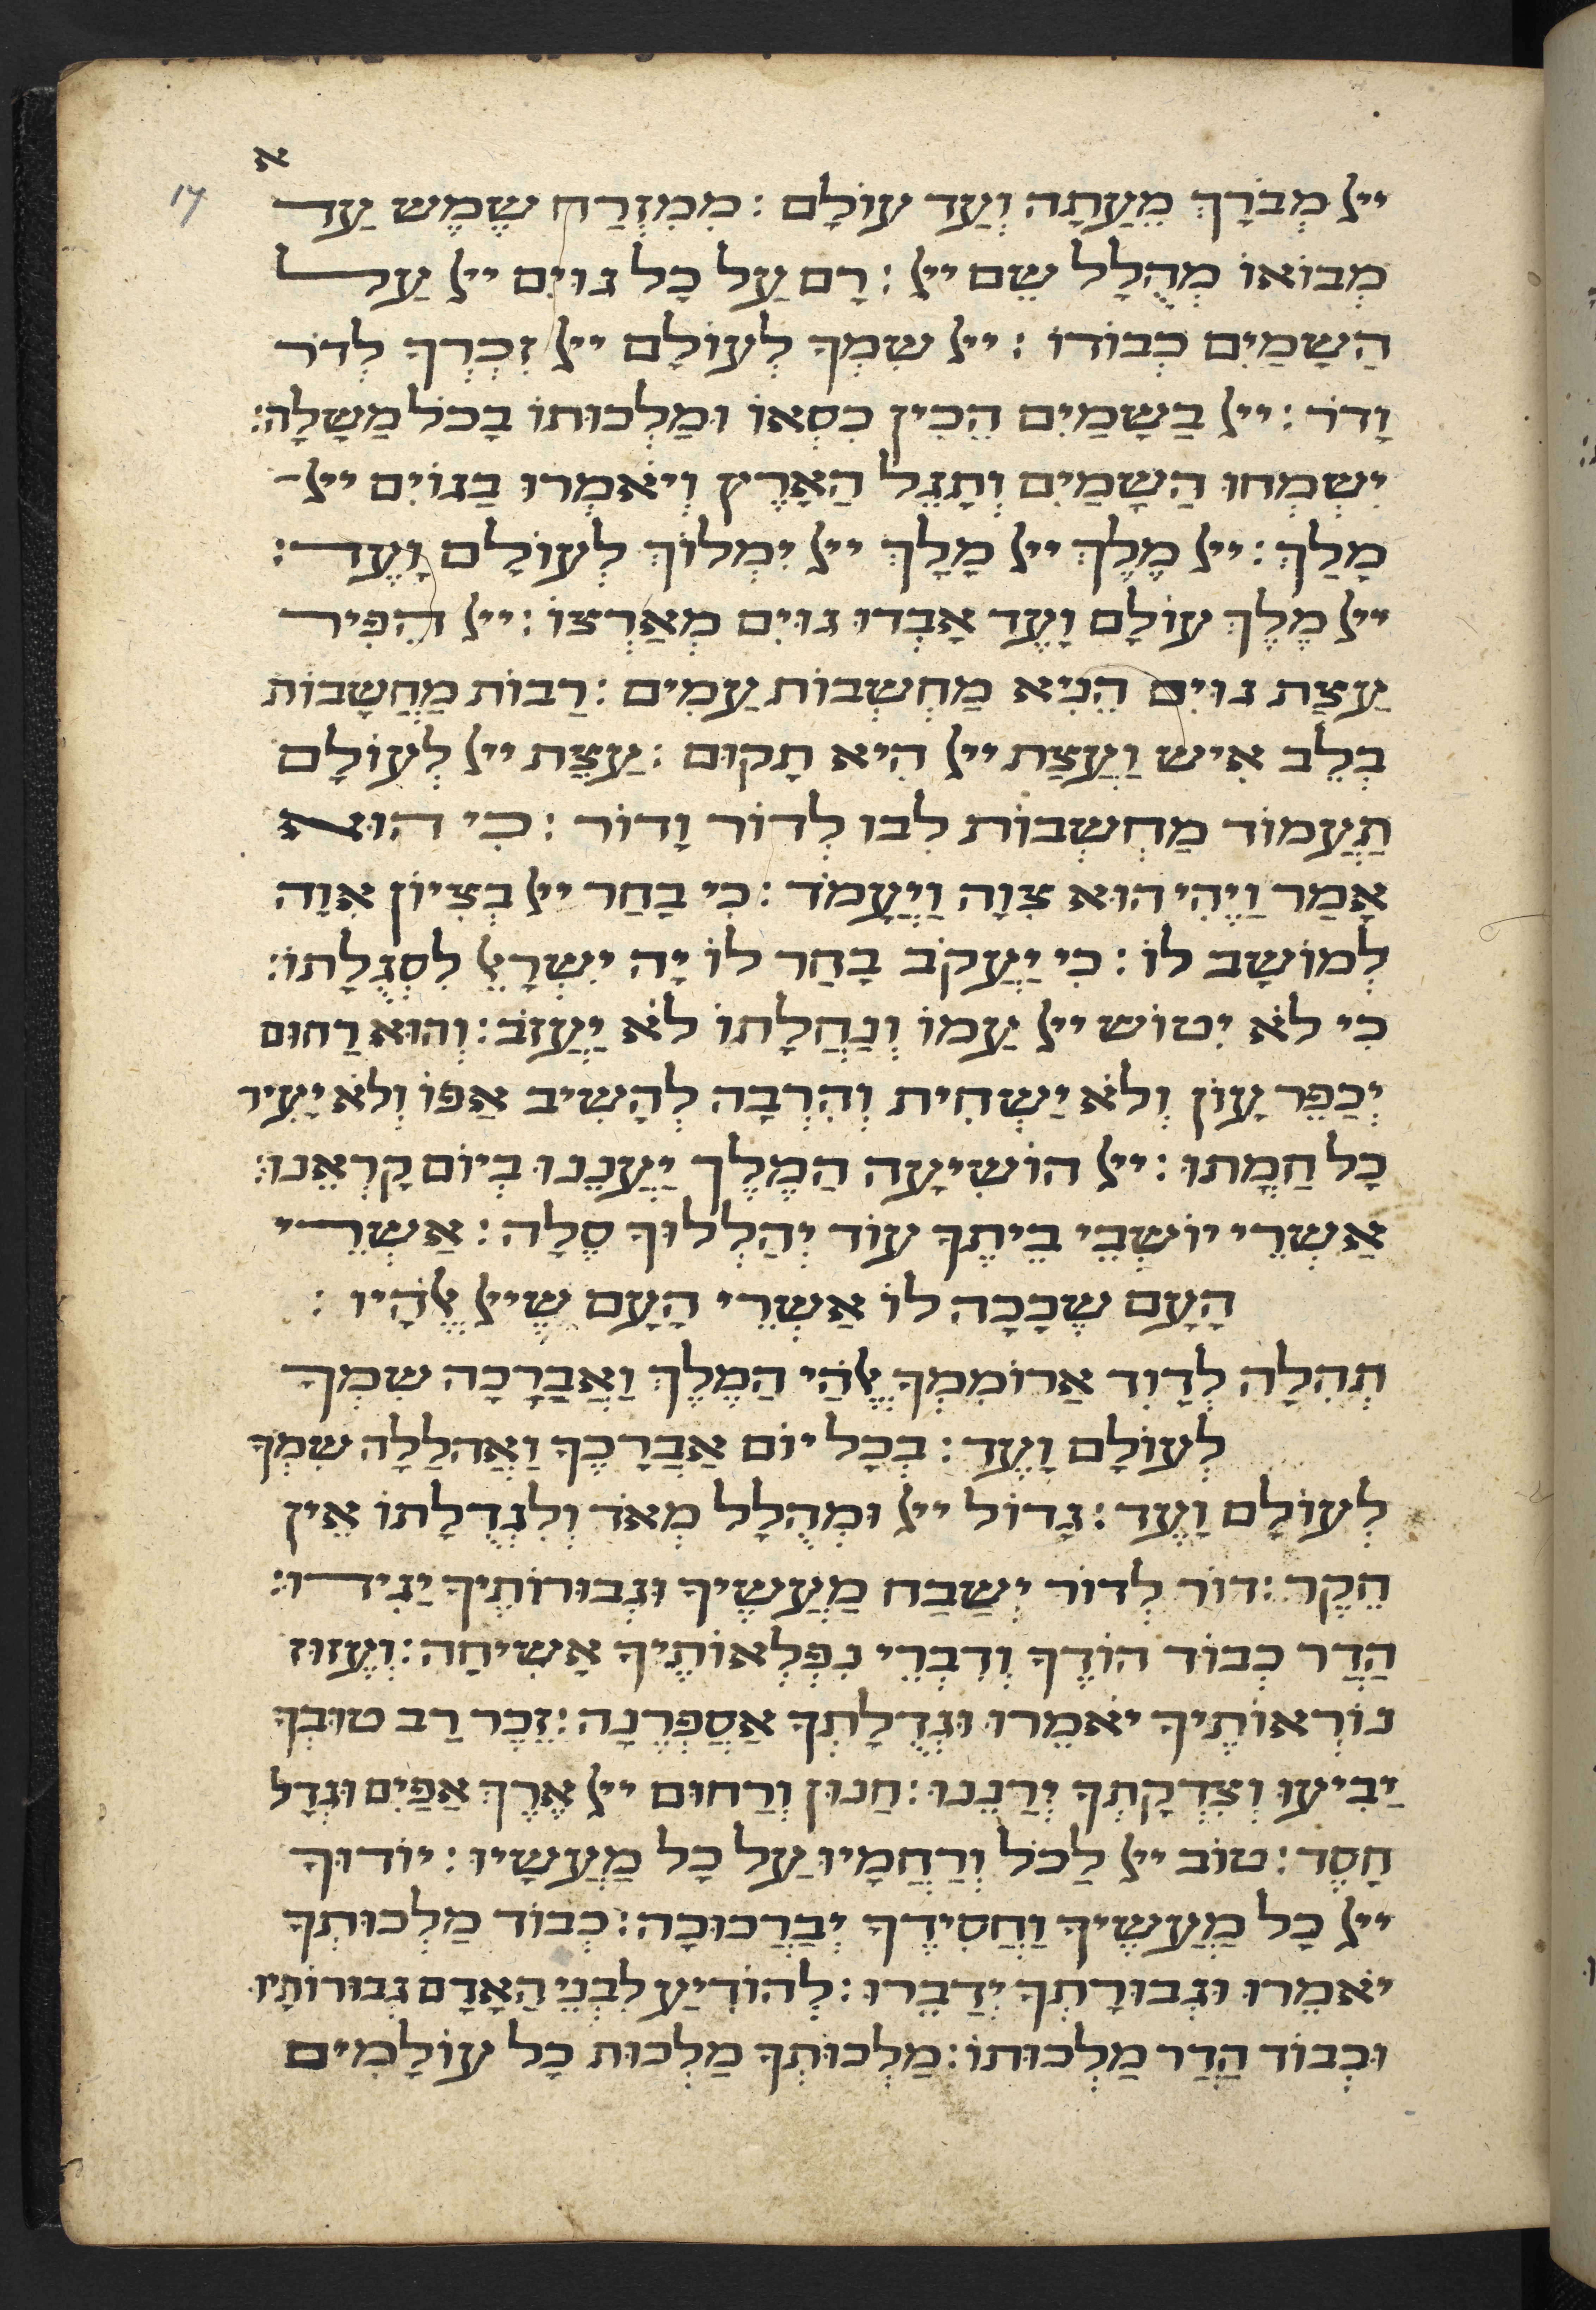 א
17
ייי מְבֹרָךְ מֵעַתָה וְעַד עוֹלָם : מִמִזְרַח שֶמֶש עַד
מְבוֹאוֹ מְהֻלָל שֵם ייי : רָם עַל כָל גוֹיִם ייי עַל
הַשָמַיִם כְבוֹדוֹ : ייי שִמְךָ לְעוֹלָם ייי זִכְרְךָ לְדֹר
וָדֹר : ייי בַשָמַיִם הֵכִין כִסְאוֹ וּמַלְכוּתוֹ בָכֹל מָשָלָה :
יִשְמְחוּ הַשָמַיִם וְתָגֵל הָאָרֶץ וְיֹאמְרוּ בַגוֹיִם ייי
מָלַךְ : ייי מֶלֶךְ ייי מָלָךְ ייי יִמְלוֹךְ לְעוֹלָם וָעֶד :
ייי מֶלֶךְ עוֹלָם וָעֶד אָבְדוּ גוֹיִם מְאַרְצוֹ : ייי הֵפִיר
עֲצַת גוֹיִם הֵנִיא מַחְשְבוֹת עַמִים : רַבוֹת מַחֲשָבוֹת
בְלֵב אִיש וַעֲצַת ייי הִיא תָקוּם : עֲצַת ייי לְעוֹלָם
תַעֲמוֹד מַחְשְבוֹת לִבוֹ לְדוֹר וָדוֹר : כִי הוּא
אָמַר וַיֶהִי הוּא צִוָה וַיַעֲמֹד : כִי בָחַר ייי בְצִיוֹן אִוָה
לְמוֹשָב לוֹ : כִי יַעֲקֹב בָחַר לוֹ יָה יִשְרָאֵל לִסְגֻלָתוֹ :
כִי לֹא יִטוֹש ייי עַמוֹ וְנַחֲלָתוֹ לֹא יַעֲזֹב : וְהוּא רַחוּם
יְכַפֵר עָוֹן וְלֹא יַשְחִית וְהִרְבָה לְהָשִיב אַפוֹ וְלֹא יָעִיר
כָל חֲמָתוֹ : ייי הוֹשִיעָה הַמֶלֶך יַעֲנֵנוּ בְיוֹם קָרְאֵנוּ :
אַשְרֵי יוֹשְבֵי בֵיתֶךָ עוֹד יְהַלְלוּךָ סֶלָה : אַשְרֵי
הָעָם שֶכָכָה לוֹ אַשְרֵי הָעָם שֶייי אֱלֹהָיו :
תְהִלָה לְדָוִד אֲרוֹמִמְךָ אֱלֹהַי הַמֶלֶךְ וַאֲבָרְכָה שִמְךָ
לְעוֹלָם וָעֶד : בְכָל יוֹם אֲבָרְכֶךָ וַאֲהַלְלָה שִמְךָ
לְעוֹלָם וָעֶד : גָדוֹל ייי וּמְהֻלָל מְאֹד וְלִגְדֻלָתוֹ אֵין
חֵקֶר : דוֹר לְדוֹר יְשַבַח מַעֲשֶיךָ וּגְבוּרוֹתֶיךָ יַגִידוּ :
הֲדַר כְבוֹד הוֹדֶךָ וְדִבְרֵי נִפְלְאוֹתֶיךָ אָשִיחָה : וְעֱזוּז
נוֹרְאוֹתֶיךָ יֹאמֵרוּ וּגְדֻלָתְךָ אֲסַפְרֶנָה : זֵכֶר רַב טוּבְךָ
יַבִיעוּ וְצִדְקָתְךָ יְרַנֵנוּ : חַנוּן וְרַחוּם ייי אֶרֶךְ אַפַיִם וּגְדָל
חָסֶד : טוֹב ייי לַכֹל וְרַחֲמָיו עַל כָל מַעֲשָיו : יוֹדוּךָ
ייי כָל מַעֲשֶיךָ וַחֲסִידֶךָ יְבָרֲכוּכָה : כְבוֹד מַלְכוּתְךָ
יֹאמֵרוּ וּגְבוּרָתְךָ יְדַבֵרוּ : לְהוֹדִיעַ לִבְנֵי הָאָדָם גְבוּרוֹתָיו
וּכְבוֹד הֲדַר מַלְכוּתוֹ : מַלְכוּתְךָ מַלְכוּת כָל עוֹלָמִים